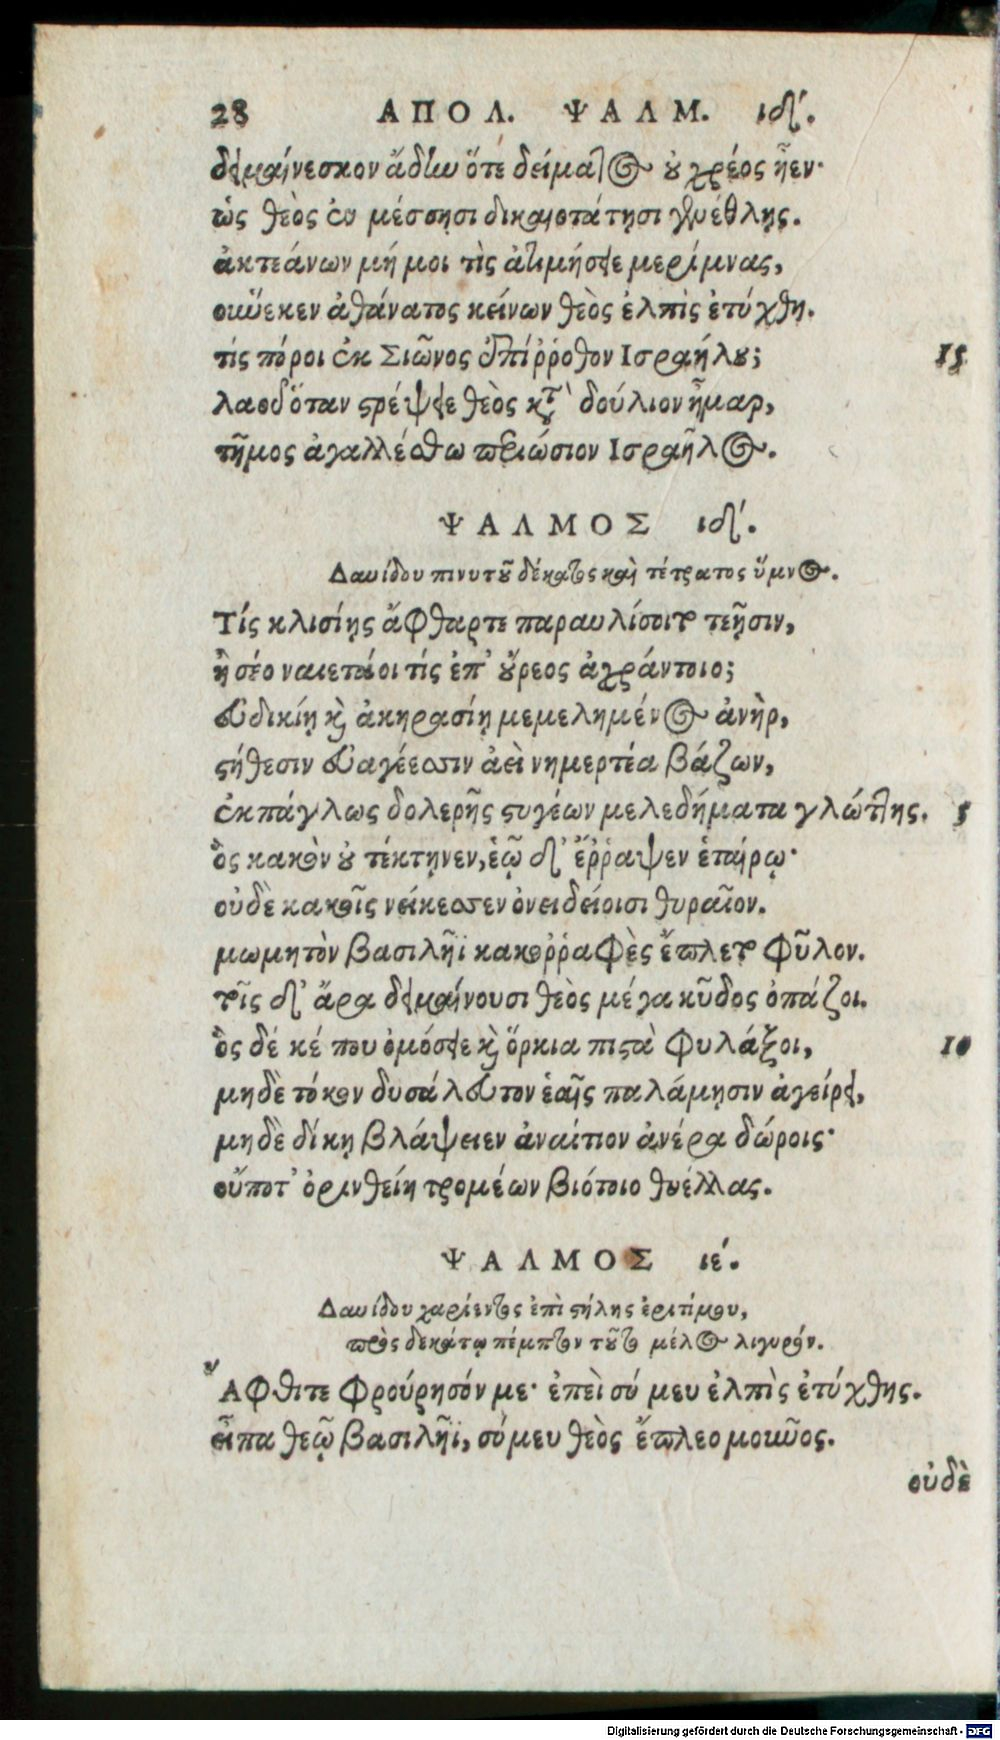 28 ΑΠΟΛ. ΨΑΛΜ. ιδ´.
δειμαίνεσκον ἄδην ὅτε δείματος οὐ χρέος ἦεν·
ὡς θεὸς ἐν μέσσῃσι δικαιοτάτῃσι γενέθλῃς.
ἀκτεάνων μή μοι τὶς ἀτιμήσειε μερίμνας,
οὕνεκεν ἀθάνατος κείνων θεὸς ἐλπὶς ἐτύχθη.
τίς πόροι ἐκ Σιῶνος ἐπίῤῥοθον Ισραήλου; 15
λαοῦ ὅταν στρέψειε θεὸς κατὰ δούλιον ἦμαρ,
τῆμος ἀγαλλέσθω περιώσιον Ισραῆλος.
ΨΑΛΜΟΣ ιδ´.
Δαυίδου πινυτοῦ δέκατος καὶ τέτρατος ὕμνος.
Τίς κλισίῃς ἄφθαρτε παραυλίσσοιτο τεῇσιν,
ἢ σέο ναιετάοι τίς ἐπ᾽ οὔρεος ἀχράντοιο;
εὐδικίῃ καὶ ἀκηρασίῃ μεμελημένος ἀνὴρ,
στήθεσιν εὐαγέεσσιν ἀεὶ νημερτέα βάζων,
ἐκπάγλως δολερῆς στυγέων μελεδήματα γλώττης. 5
ὃς κακὸν οὐ τέκτηνεν, ἑῷ δ᾽ ἔῤῥαψεν ἑταίρῳ·
οὐδὲ κακοῖς νείκεσσεν ὀνειδείοισι θυραῖον.
μωμητὸν βασιλῆϊ κακοῤῥαφὲς ἔπλετο φῦλον.
τοῖς δ᾽ ἄρα δειμαίνουσι θεὸς μέγα κῦδος ὀπάζοι.
ὃς δέ κέ που ὀμόσειε καὶ ὅρκια πιστὰ φυλάξοι, 10
μηδὲ τόκον δυσάλευτον ἑαῖς παλάμῃσιν ἀγείρει,
μηδὲ δίκῃ βλάψειεν ἀναίτιον ἀνέρα δώροις·
οὔποτ᾽ ὀρινθείη τρομέων βιότοιο θυέλλας.
ΨΑΛΜΟΣ ιέ.
Δαυίδου χαρίεντος ἐπὶ στήλης ἐριτίμου,
πρὸς δεκάτῳ πέμπτον τοῦτο μέλος λιγυρόν.
῎Αφθιτε φρούρησόν με· ἐπεὶ σύ μευ ἐλπὶς ἐτύχθης.
εἶπα θεῷ βασιλῆϊ, σύ μευ θεὸς ἔπλεο μοῦνος.
οὐδὲ
Digitalisierung gefördert durch die Deutsche Forschungsgemeinschaft - DFG